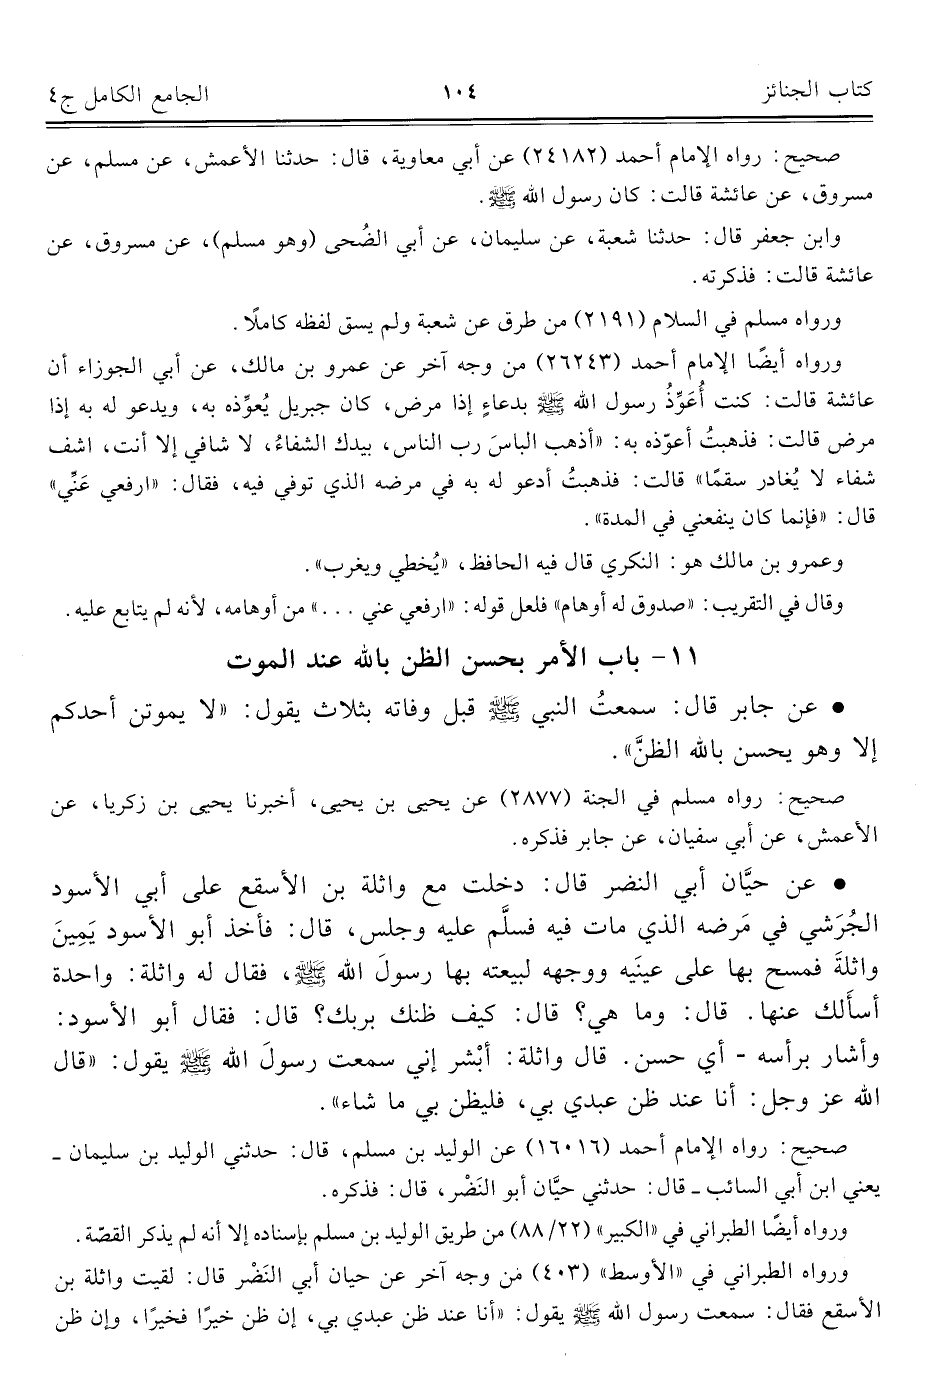 كتاب الجنائز ١٠٤ الجامع الكامل ج٤
صحيح: رواه الإمام أحمد (٢٤١٨٢) عن أبي معاوية، قال: حدثنا الأعمش، عن مسلم، عن
مسروق، عن عائشة قالت: كان رسول الله ﷺ.
وابن جعفر قال: حدثنا شعبة، عن سليمان، عن أبي الضُحى (وهو مسلم)، عن مسروق، عن
عائشة قالت: فذكرته.
ورواه مسلم في السلام (٢١٩١) من طرق عن شعبة ولم يسق لفظه كاملًا.
ورواه أيضًا الإمام أحمد (٢٦٢٤٣) من وجه آخر عن عمرو بن مالك، عن أبي الجوزاء أن
عائشة قالت: كنت أُعَوِّذُ رسول الله ﷺ بدعاءٍ إذا مرض، كان جبريل يُعوِّذه به، ويدعو له به إذا
مرض قالت: فذهبتُ أعوّذه به: «أذهب الباسَ رب الناس، بيدك الشفاءُ، لا شافي إلا أنت، اشف
شفاء لا يُغادر سقمًا» قالت: فذهبتُ أدعو له به في مرضه الذي توفي فيه، فقال: «ارفعي عَنِّي»
قال: «فإنما كان ينفعني في المدة».
وعمرو بن مالك هو: النكري قال فيه الحافظ، «يُخطي ويغرب».
وقال في التقريب: «صدوق له أوهام» فلعل قوله: «ارفعي عني ...» من أوهامه، لأنه لم يتابع عليه.
١١- باب الأمر بحسن الظن بالله عند الموت
• عن جابر قال: سمعتُ النبي ﷺ قبل وفاته بثلاث يقول: «لا يموتن أحدكم
إلا وهو يحسن بالله الظنَّ».
صحيح: رواه مسلم في الجنة (٢٨٧٧) عن يحيى بن يحيى، أخبرنا يحيى بن زكريا، عن
الأعمش، عن أبي سفيان، عن جابر فذكره.
• عن حيَّان أبي النضر قال: دخلت مع واثلة بن الأسقع على أبي الأسود
الجُرَشي في مَرضه الذي مات فيه فسلَّم عليه وجلس، قال: فأخذ أبو الأسود يَمِينَ
واثلةَ فمسح بها على عينَيه ووجهه لبيعته بها رسولَ الله ﷺ، فقال له واثلة: واحدة
أسأَلك عنها. قال: وما هي؟ قال: كيف ظنك بربك؟ قال: فقال أبو الأسود:
وأشار برأسه - أي حسن. قال واثلة: أبْشر إني سمعت رسولَ الله ﷺ يقول: «قال
الله عز وجل: أنا عند ظن عبدي بي، فليظن بي ما شاء».
صحيح: رواه الإمام أحمد (١٦٠١٦) عن الوليد بن مسلم، قال: حدثني الوليد بن سليمان ـ
يعني ابن أبي السائب ـ قال: حدثني حيَّان أبو النَضْر، قال: فذكره.
ورواه أيضًا الطبراني في «الكبير» (٢٢/ ٨٨) من طريق الوليد بن مسلم بإسناده إلا أنه لم يذكر القصّة.
ورواه الطبراني في «الأوسط» (٤٠٣) من وجه آخر عن حيان أبي النَضْر قال: لقيت واثلة بن
الأسقع فقال: سمعت رسول الله ﷺ يقول: «أنا عند ظن عبدي بي، إن ظن خيرًا فخيرًا، وإن ظن